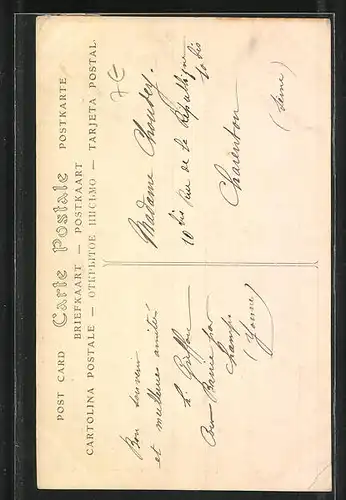 POST CARD Carte Postale POSTKARTE
BRIEFKAART — POSTKAART
CARTOLINA POSTALE — ОТКРЫТОЕ ПИСЬМО — TARJETA POSTAL.
7€
Bon souvenir
et meilleures amitiés
L. Griffon
par
Champs
(Yonne)
Madame Choudey.
10 bis Rue de la République
10 bis
Charenton
(Seine)